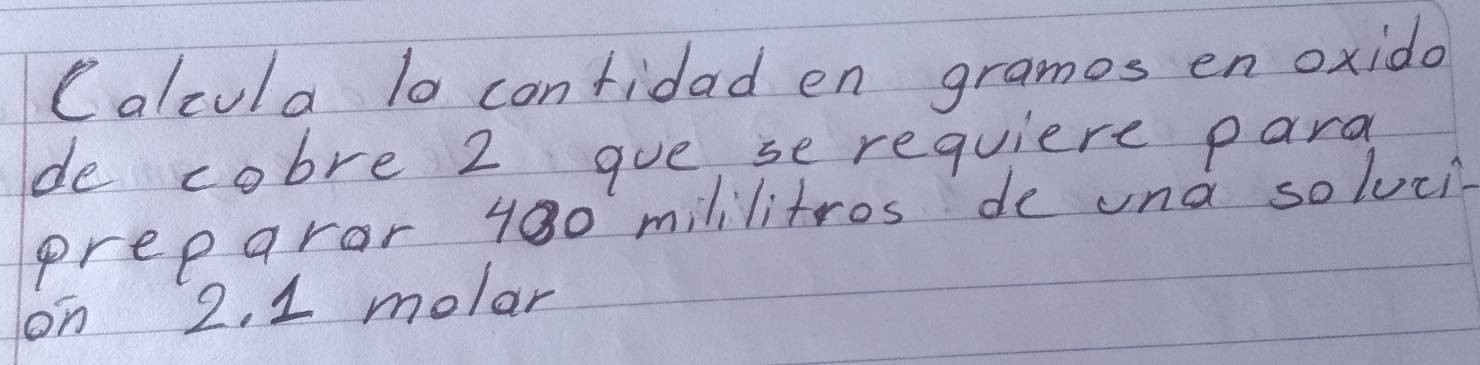 Calcula la cantidad en gramos en oxido
de cobre 2 que se requiere para
preparar 480 mililitros de una soluci-
ón 2.1 molar